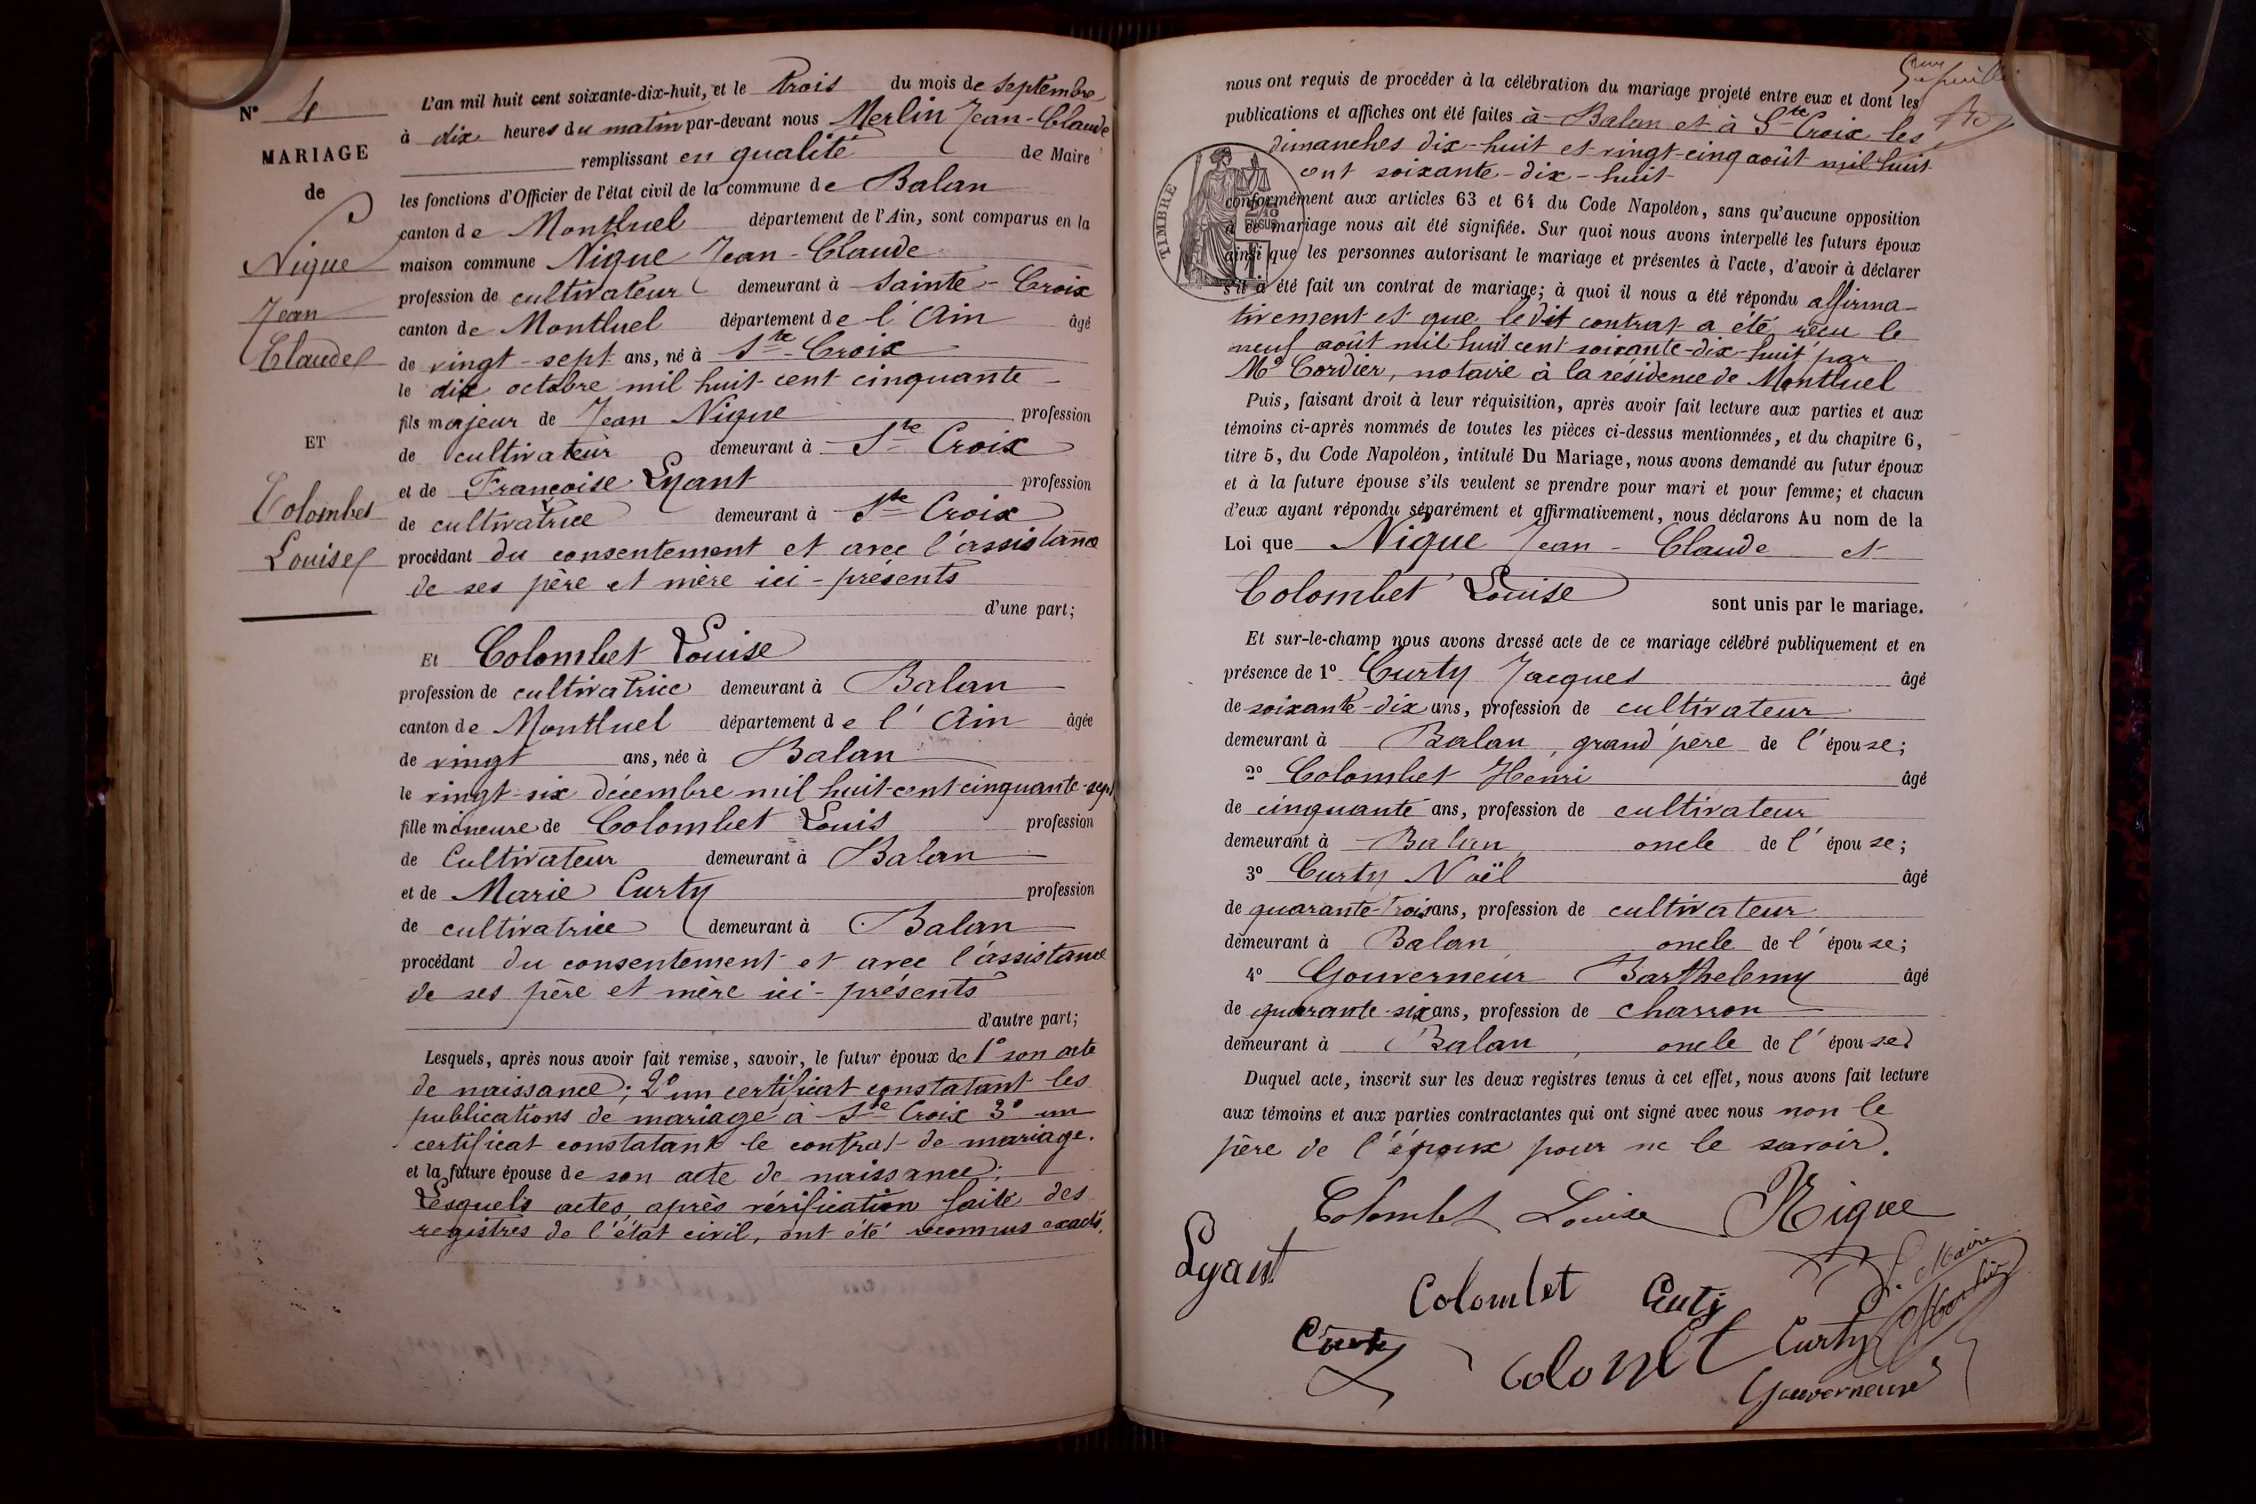 N° 4
MARIAGE
de
Nique
Jean
Claude
ET
Colombet
Louise
L'an mil huit cent soixante-dix-huit, et le Trois du mois de septembre
à dix heures du matin par-devant nous Merlin Jean-Claude
remplissant en qualité de Maire
les fonctions d'Officier de l'état civil de la commune de Balan
canton de Montluel département de l'Ain, sont comparus en la
maison commune Nique Jean-Claude
profession de cultivateur demeurant à Sainte-Croix
canton de Montluel département de l'Ain âgé
de vingt-sept ans, né à Ste-Croix
le dix octobre mil huit cent cinquante
fils majeur de Jean Nique profession
de cultivateur demeurant à Ste Croix
et de Françoise Lyant profession
de cultivatrice demeurant à Ste Croix
procédant du consentement et avec l'assistance
de ses père et mère ici-présents
d'une part;
Et Colombet Louise
profession de cultivatrice demeurant à Balan
canton de Montluel département de l'Ain âgée
de vingt ans, née à Balan
le vingt-six décembre mil huit-cent-cinquante-sept
fille mineure de Colombet Louis profession
de Cultivateur demeurant à Balan
et de Marie Curty profession
de cultivatrice demeurant à Balan
procédant du consentement et avec l'assistance
de ses père et mère ici-présents
d'autre part;
Lesquels, après nous avoir fait remise, savoir, le futur époux de 1° son acte
de naissance; 2° un certificat constatant les
publications de mariage à Ste Croix 3° un
certificat constatant le contrat de mariage.
et la future épouse de son acte de naissance.
Lesquels actes, après vérification faite des
registres de l'état civil, ont été reconnus exacts.
nous ont requis de procéder à la célébration du mariage projeté entre eux et dont les
publications et affiches ont été faites à Balan et à Ste Croix les
dimanches dix-huit et vingt-cinq août mil huit
cent soixante-dix-huit
TIMBRE
conformément aux articles 63 et 64 du Code Napoléon, sans qu'aucune opposition
à ce mariage nous ait été signifiée. Sur quoi nous avons interpellé les futurs époux
ainsi que les personnes autorisant le mariage et présentes à l'acte, d'avoir à déclarer
s'il a été fait un contrat de mariage; à quoi il nous a été répondu affirma-
tivement et que ledit contrat a été reçu le
neuf août mil huit cent soixante-dix-huit par
Me Cordier, notaire à la résidence de Montluel
Puis, faisant droit à leur réquisition, après avoir fait lecture aux parties et aux
témoins ci-après nommés de toutes les pièces ci-dessus mentionnées, et du chapitre 6,
titre 5, du Code Napoléon, intitulé Du Mariage, nous avons demandé au futur époux
et à la future épouse s'ils veulent se prendre pour mari et pour femme; et chacun
d'eux ayant répondu séparément et affirmativement, nous déclarons Au nom de la
Loi que Nique Jean-Claude et
Colombet Louise sont unis par le mariage.
Et sur-le-champ nous avons dressé acte de ce mariage célébré publiquement et en
présence de 1° Curty Jacques âgé
de soixante-dix ans, profession de cultivateur
demeurant à Balan, grand père de l'épouse;
2° Colombet Henri âgé
de cinquante ans, profession de cultivateur
demeurant à Balan oncle de l'épouse;
3° Curty Noël âgé
de quarante-trois ans, profession de cultivateur
demeurant à Balan oncle de l'épouse;
4° Gouverneur Barthelemy âgé
de quarante-six ans, profession de charron
demeurant à Balan, oncle de l'épouse.
Duquel acte, inscrit sur les deux registres tenus à cet effet, nous avons fait lecture
aux témoins et aux parties contractantes qui ont signé avec nous non le
père de l'époux pour ne le savoir.
Colombet Louise Nique
Lyant
Le Maire
Colombet Curty
Curty Colombet Curty
Gouverneur